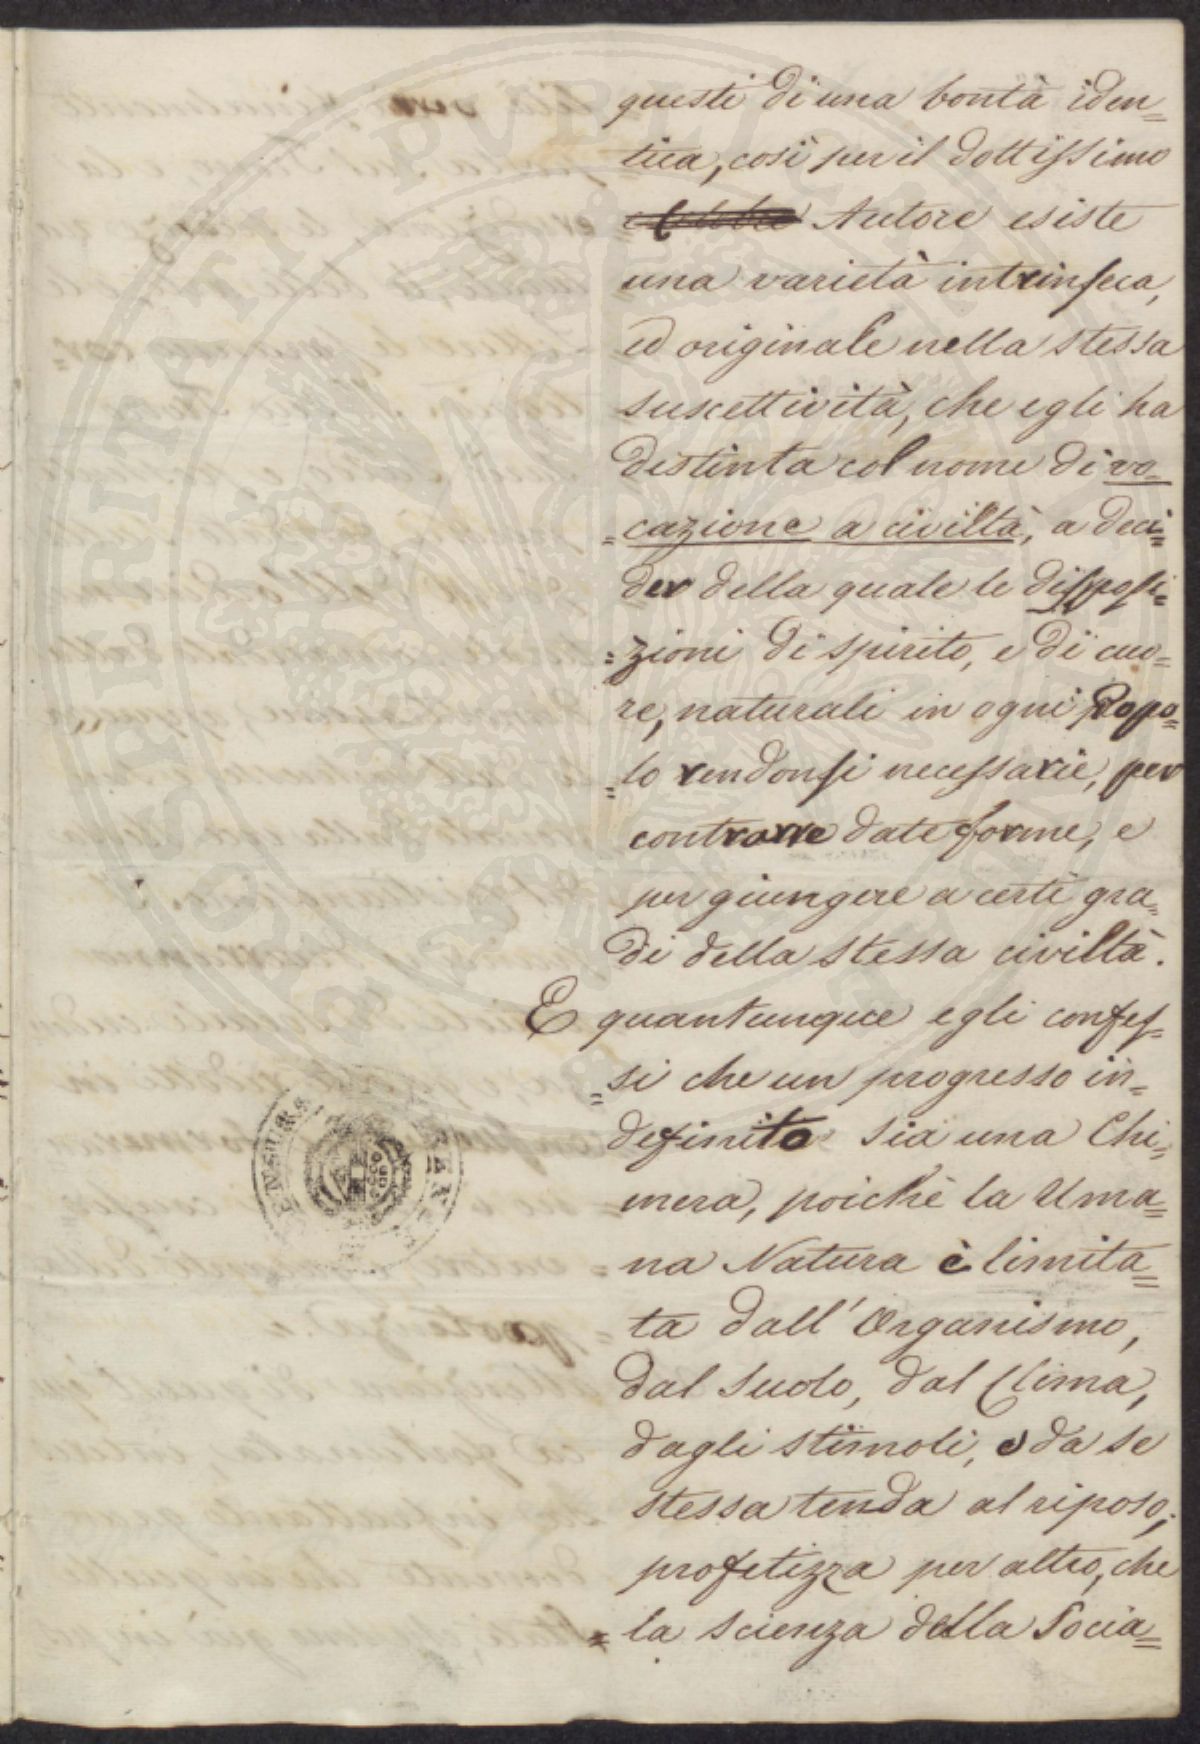 questi di una bontà iden=
tica, così per il dottissimo
Autore esiste
una varietà intrinseca,
ed originale nella stessa
suscettività, che egli ha
distinta col nome di vo=
=cazione a civiltà, a deci=
der della quale le disposi=
=zioni di spirito, e di cuo=
re, naturali in ogni Popo=
=lo rendonsi necessarie, per
contrarre date forme, e
per giungere a certi gra=
di della stessa civiltà.
E quantunque egli confes=
=si che un progresso in=
definito sia una Chi=
mera, poichè la Uma=
na Natura è limita=
ta dall'Organismo,
dal suolo, dal Clima,
dagli stimoli, e da se
stessa tenda al riposo;
profetizza per altro, che
=la scienza della Socia=